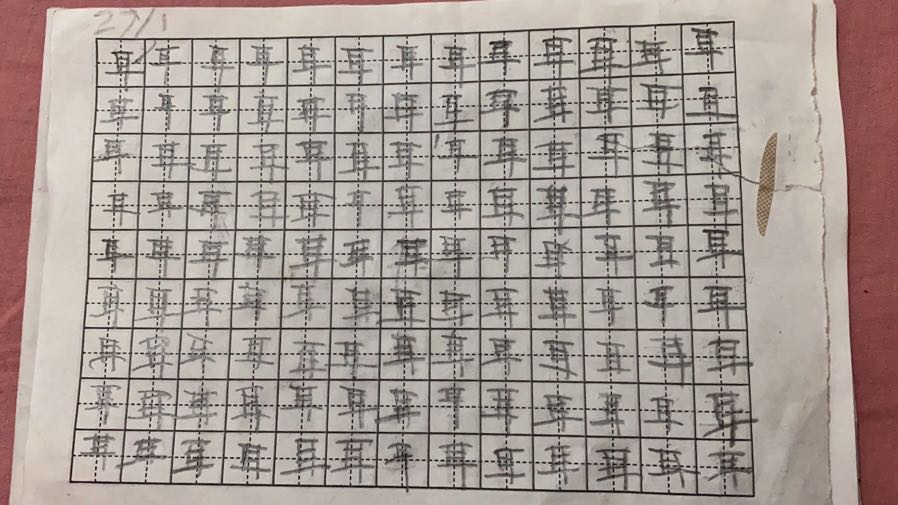 27/1
耳耳耳耳耳耳耳耳耳耳耳耳耳
耳耳耳耳耳耳耳耳耳耳耳耳耳
耳耳耳耳耳耳耳耳耳耳耳耳耳
耳耳耳耳耳耳耳耳耳耳耳耳耳
耳耳耳耳耳耳耳耳耳耳耳耳耳
耳耳耳耳耳耳耳耳耳耳耳耳耳
耳耳耳耳耳耳耳耳耳耳耳耳耳
耳耳耳耳耳耳耳耳耳耳耳耳耳
耳耳耳耳耳耳耳耳耳耳耳耳耳